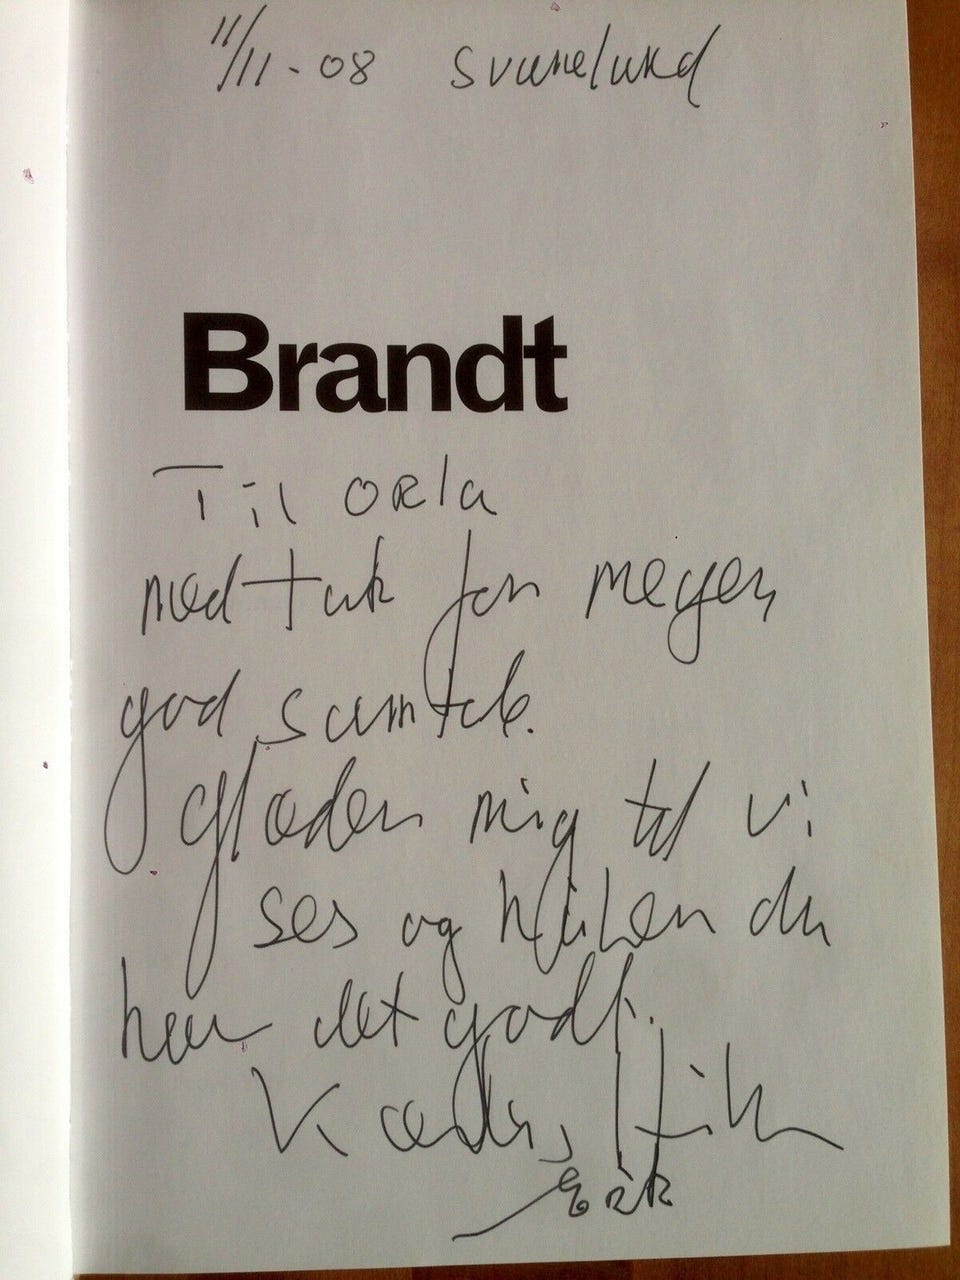 11/11-08 Svanelund
Brandt
Til ORla
med tak for megen
god samtale.
glæder mig til vi
ses og håber du
har det godt.
Kærlig Hilsen
Erik